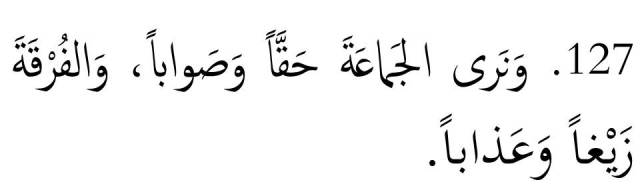 127. وَنَرى الجَماعَةَ حَقَّاً وَصَواباً، وَالفُرْقَةَ
زَيْغاً وَعَذاباً.